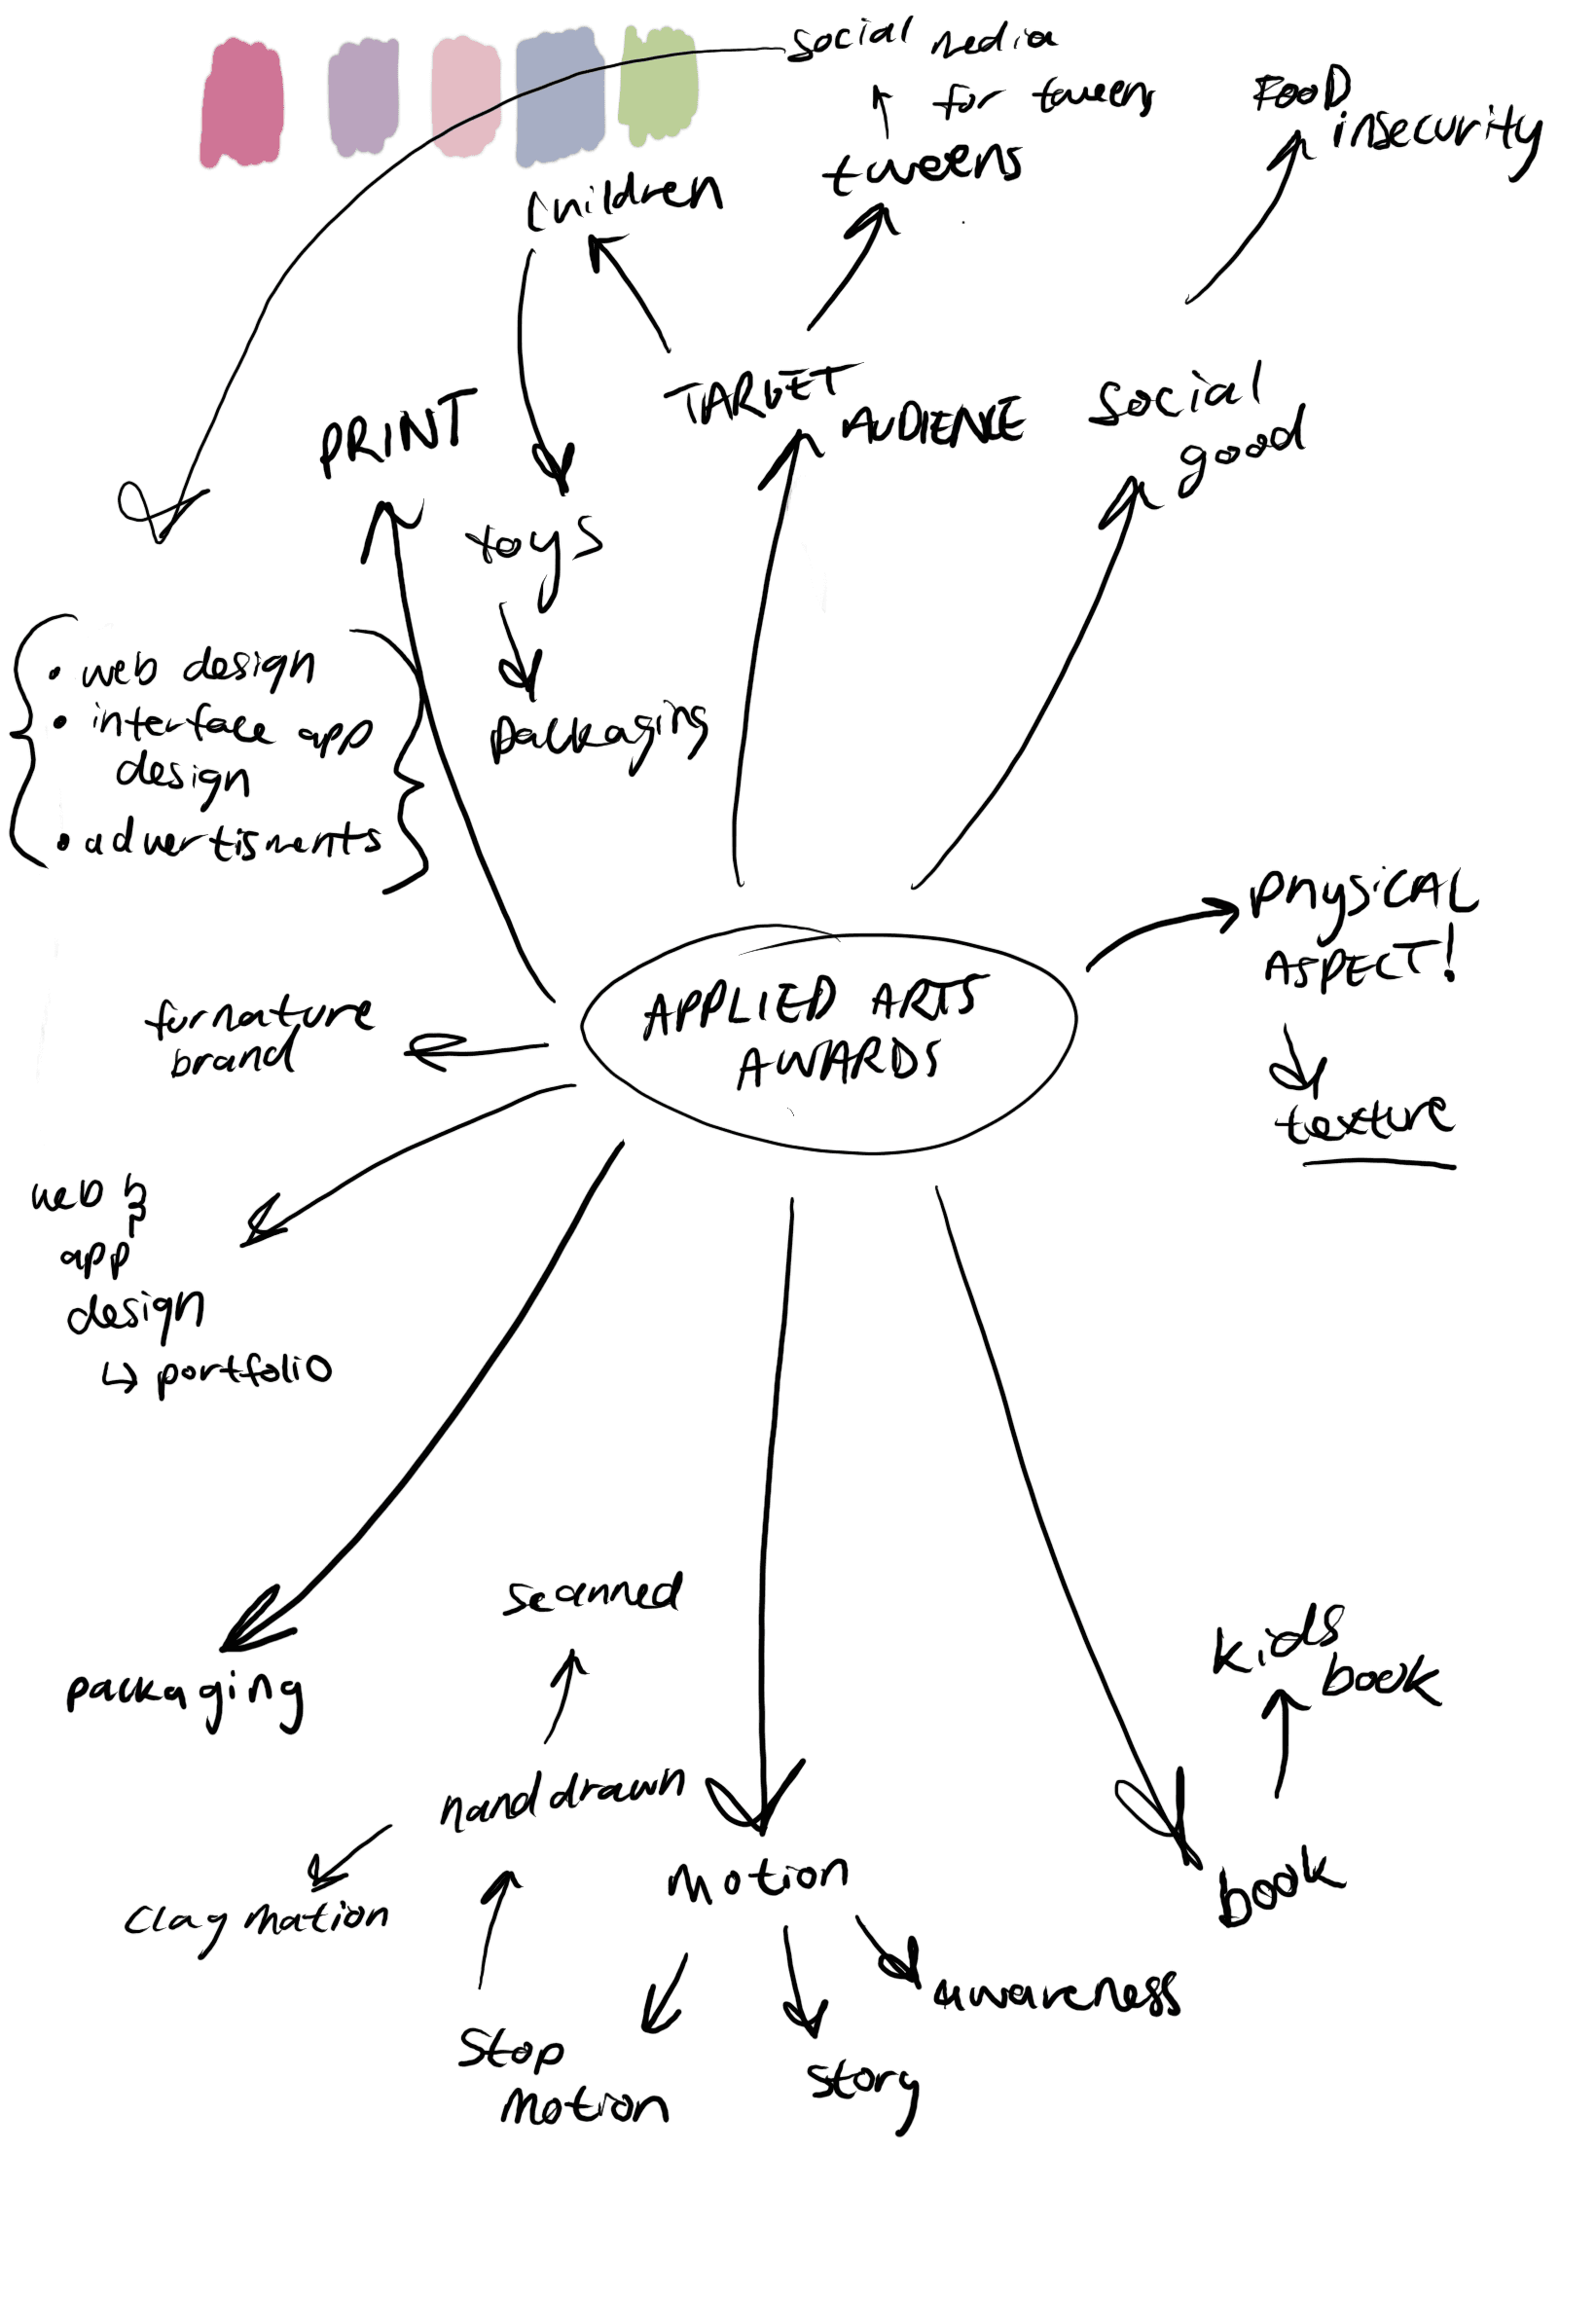 social media
for tweens
FOOD
insecurity
tweens
children
TARGET
AUDIENCE
social
good
PRINT
toys
packaging
• web design
• interface app
design
• advertisments
PHYSICAL
ASPECT!
texture
APPLIED ARTS
AWARDS
furnature
brand
web &
app
design
↳ portfolio
scanned
kids
book
packaging
hand drawn
motion
book
clay mation
awareness
stop
motion
story